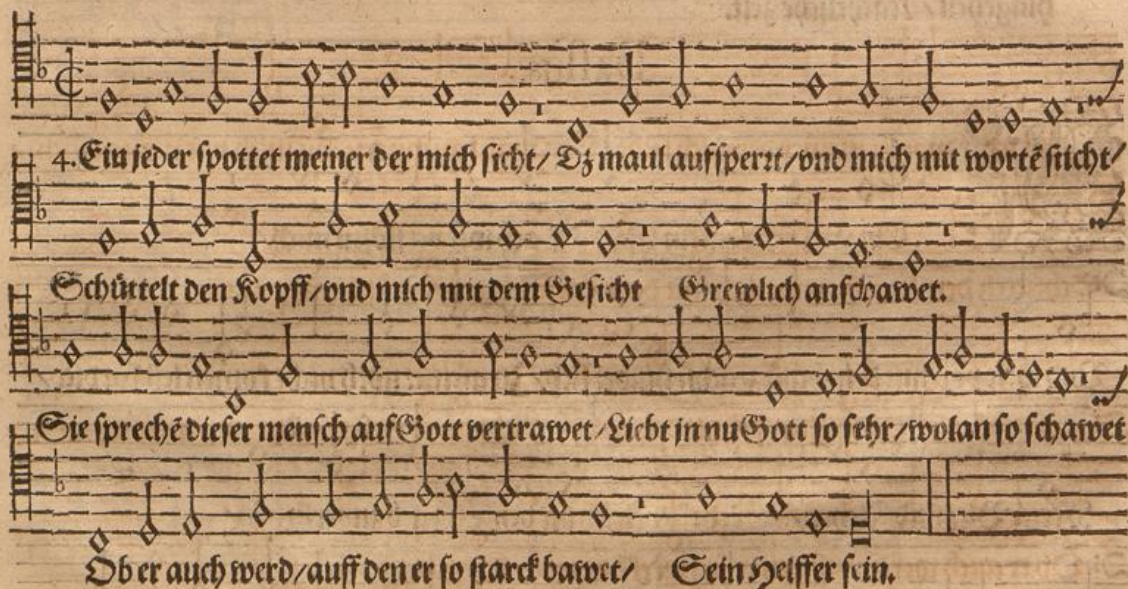 4. Ein jeder spottet meiner der mich sicht/ Dz maul aufsperrt/vnd mich mit wortē sticht/
Schüttelt den Kopff/vnd mich mit dem Gesicht Grewlich anschawet.
Sie sprechē dieser mensch auf Gott vertrawet/Liebt jn nu Gott so sehr/wolan so schawet
Ob er auch werd/auff den er so starck bawet/ Sein Helffer sein.